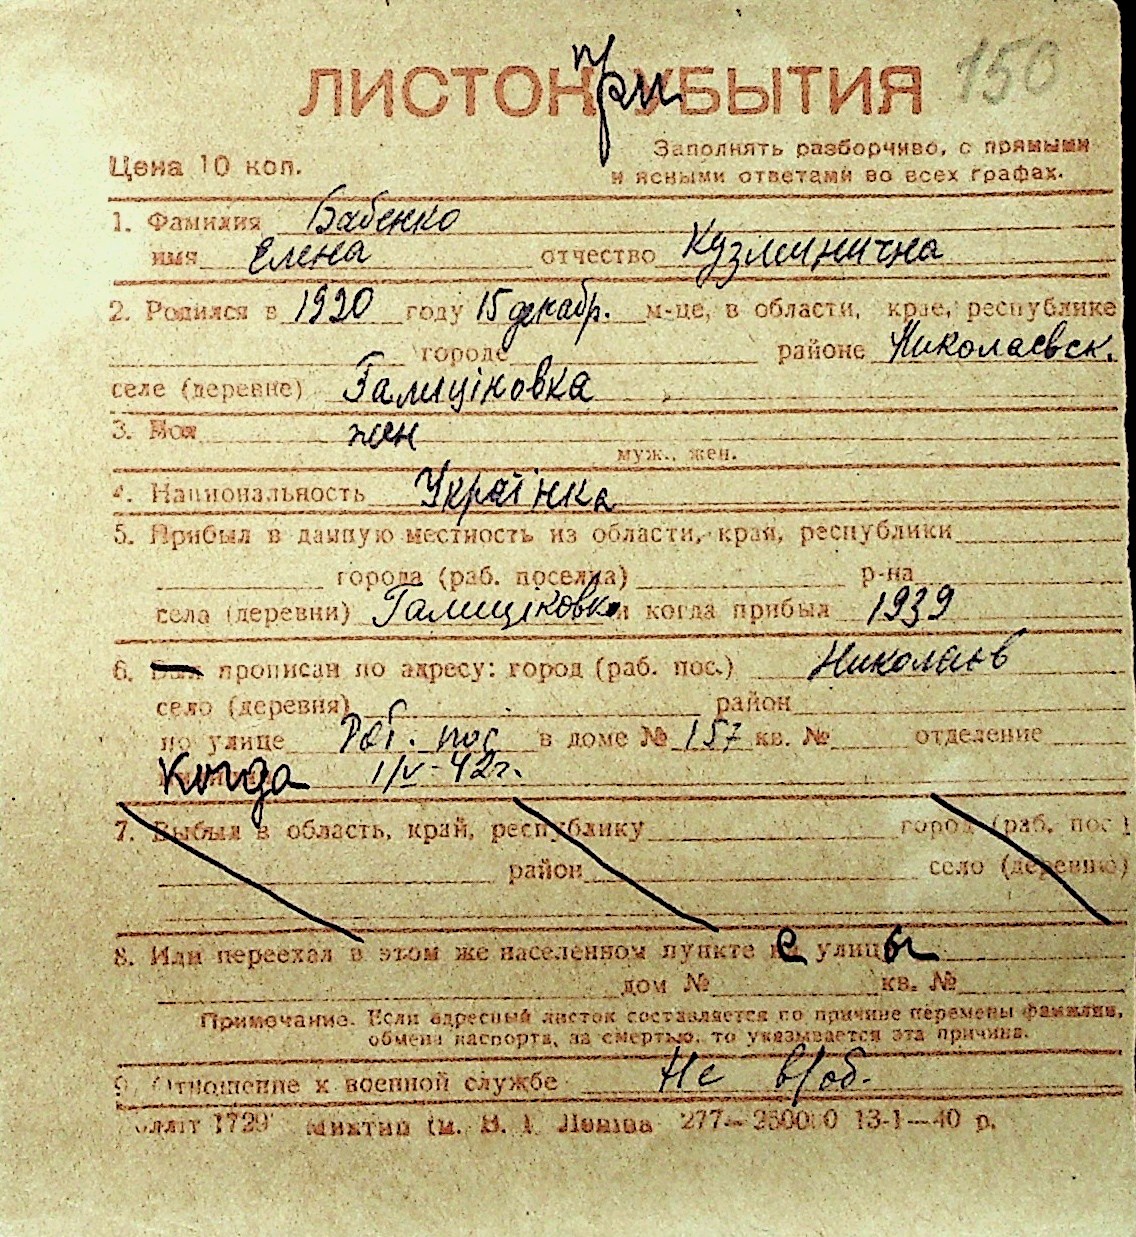 150
ЛИСТОК при УБЫТИЯ
Цена 10 коп.
Заполнять разборчиво, с прямыми
и ясными ответами во всех графах.
1. Фамилия Бабенко
имя Елена отчество Кузминична
2. Родился в 1920 году 15 декабр. м-це, в области, крае, республике
городе районе Николаевск.
селе (деревне) Галиціновка
3. Пол жен
муж., жен.
4. Национальность Українка
5. Прибыл в данную местность из области, края, республики
города (раб. поселка) р-на
села (деревни) Галиціновк и когда прибыл 1939
6. Был прописан по адресу: город (раб. пос.) Николаев
село (деревня) район
по улице Раб. пос в доме № 157 кв. № отделение
Когда 1/V-42г.
7. Выбыл в область, край, республику город (раб. пос.)
район село (деревню)
8. Или переехал в этом же населенном пункте с улицы
дом № кв. №
Примечание. Если адресный листок составляется по причине перемены фамилии,
обмена паспорта, за смертью, то указывается эта причина.
9. Отношение к военной службе Не в/об.
1729 277— 13-1—40 р.